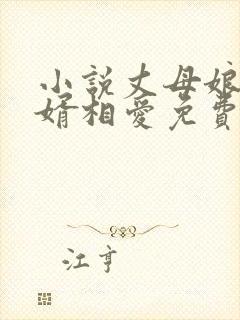 小説丈母娘
婿相愛免費
江亨